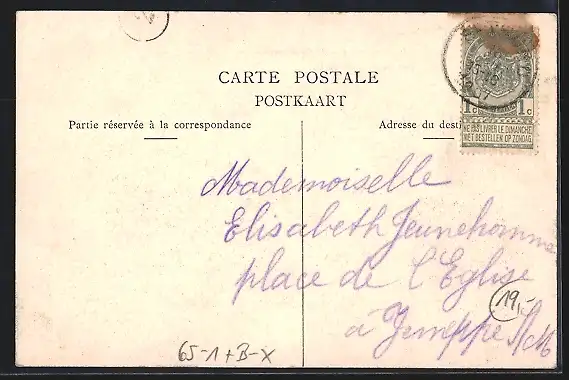 CARTE POSTALE
POSTKAART
Partie réservée à la correspondance
Adresse du desti
1c 1c
NE PAS LIVRER LE DIMANCHE
NIET BESTELLEN OP ZONDAG
Mademoiselle
Elisabeth Jeunehomme
place de l'Eglise
à Jemeppe s/M
19,-
65-1+B-X